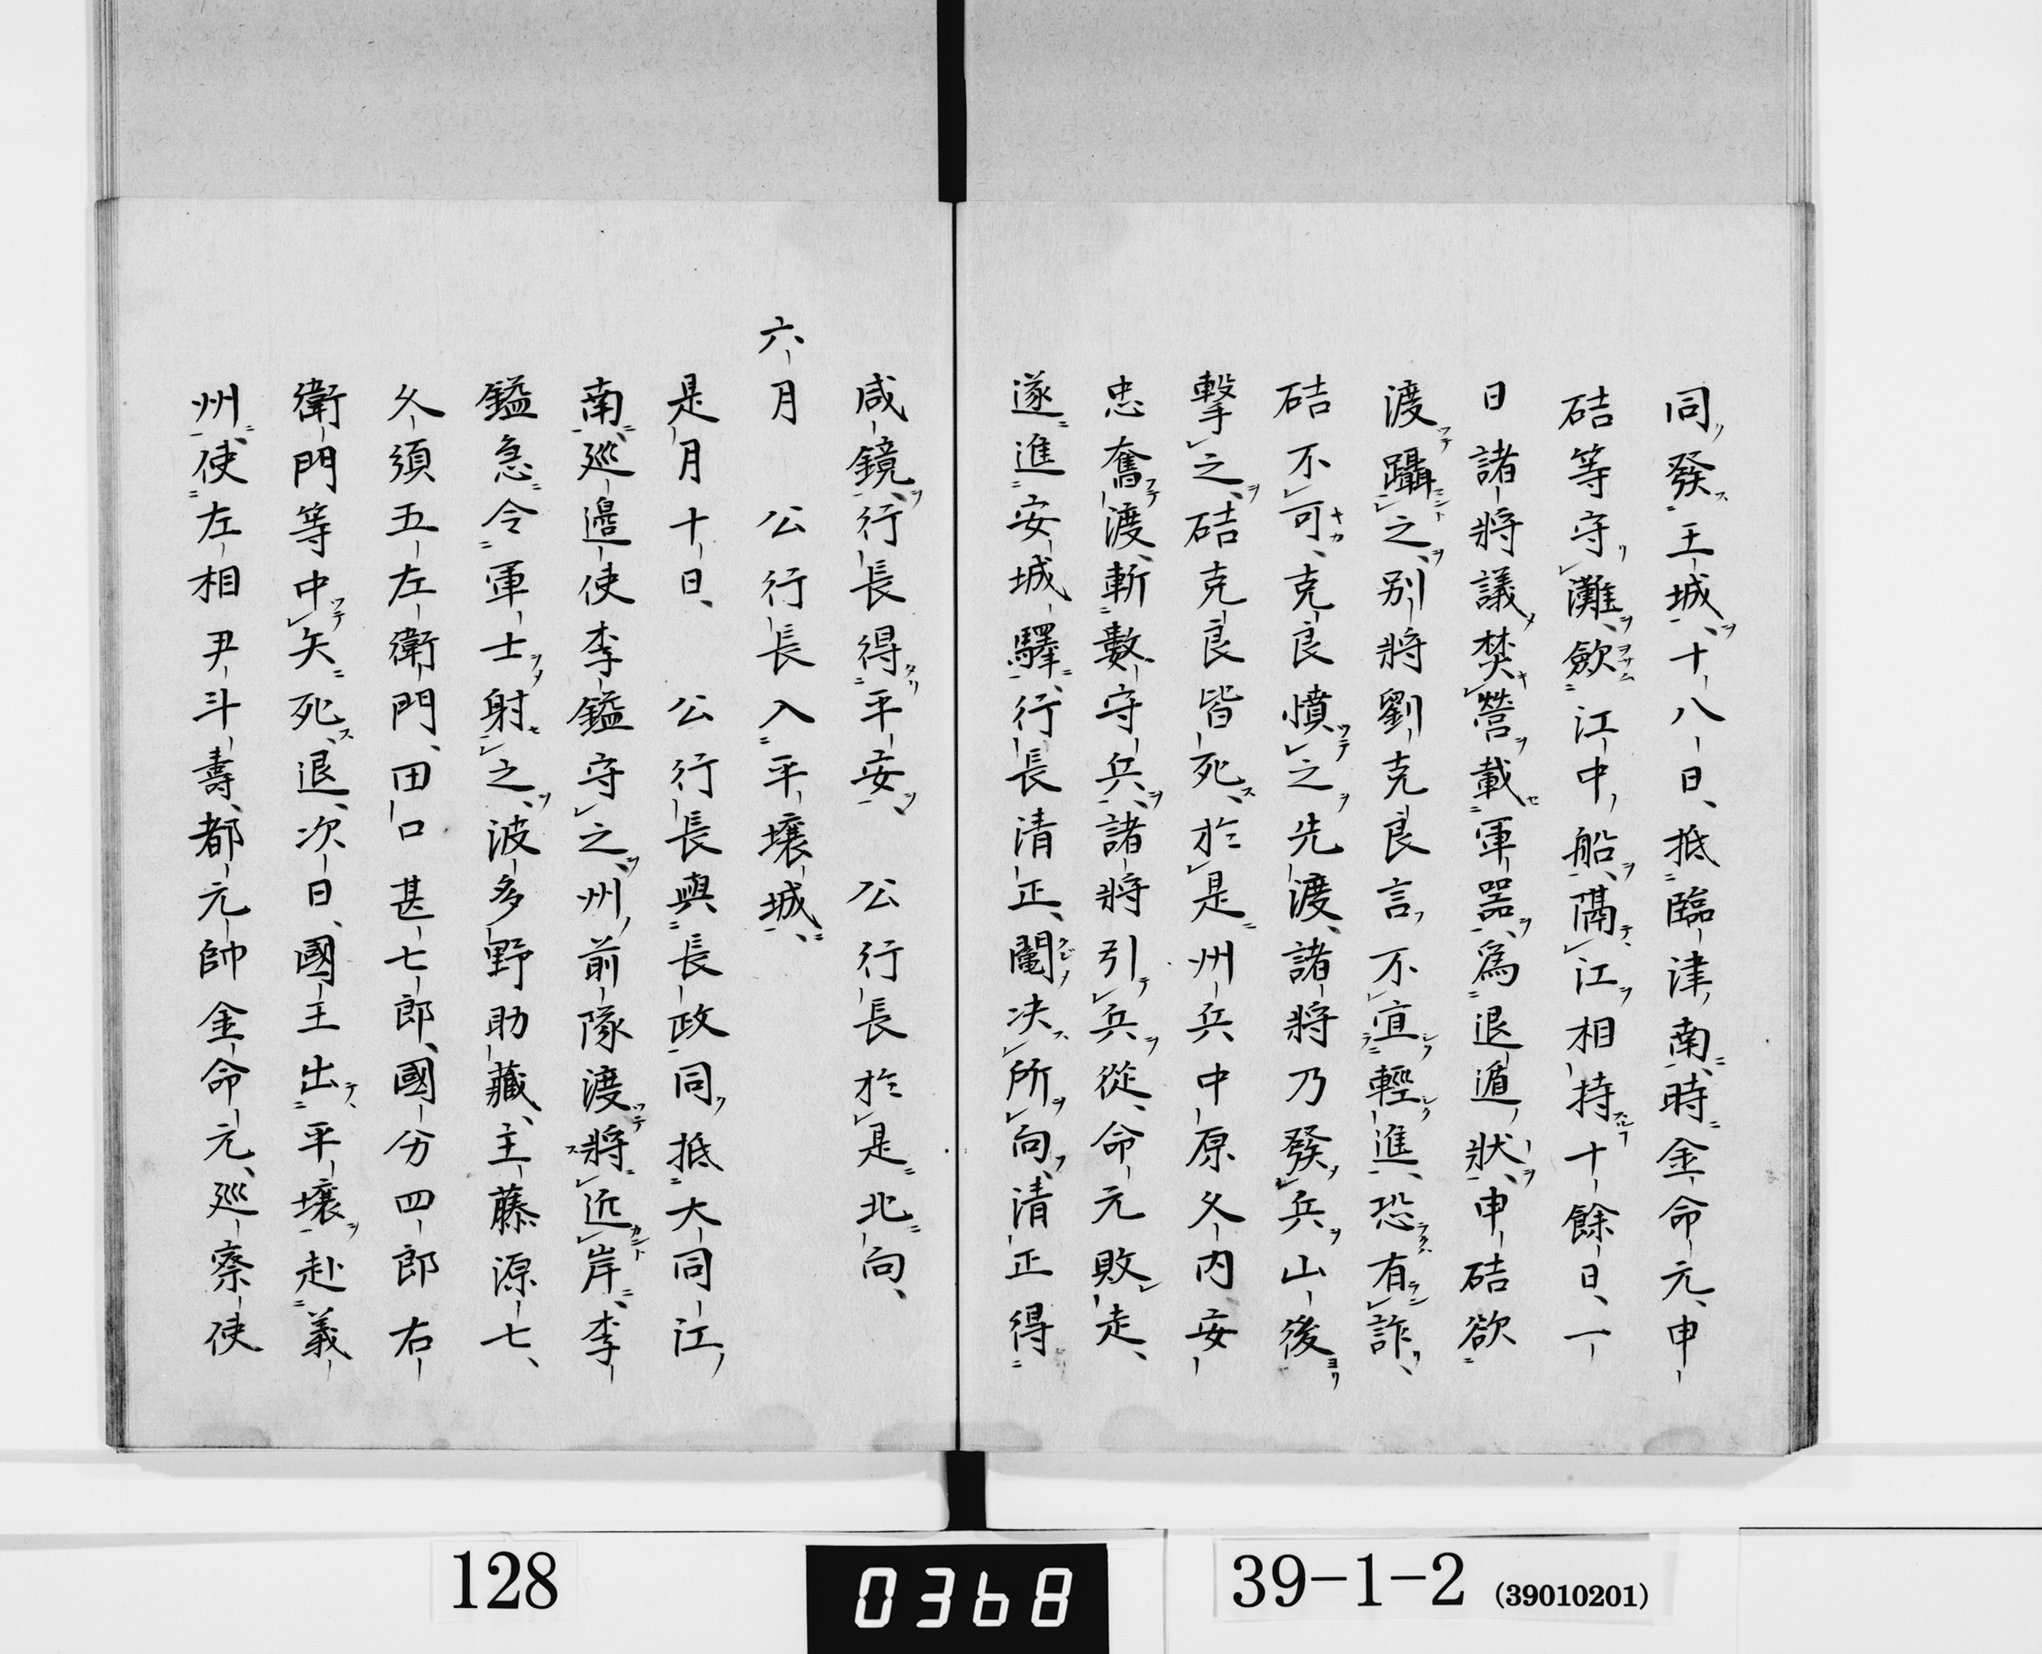 同發王城十八日、抵臨津南、時金命元、申
硈等守灘、斂江中船、隔江相持十餘日、一
日諸將議焚營載軍器、爲退遁狀、申硈欲
渡躡之、別將劉克良言不宜輕進、恐有詐、
硈不可、克良憤之先渡、諸將乃發兵山後
擊之、硈克良皆死、於是州兵中原久内安
忠奮渡、斬數守兵、諸將引兵從、命元敗走、
遂進安城驛、行長清正、鬮决所向、清正得
咸鏡、行長得平安、　公行長於是北向、
六月　公行長入平壤城、
是月十日、　公行長與長政同抵大同江
南、巡邊使李鎰守之、州前隊渡將近岸、李
鎰急令軍士射之、波多野助藏、主藤源七、
久須五左衛門、田口甚七郎、國分四郎右
衛門等中矢死、退、次日、國王出平壤赴義
州、使左相尹斗壽、都元帥金命元、巡察使
128
0368
39-1-2 (39010201)